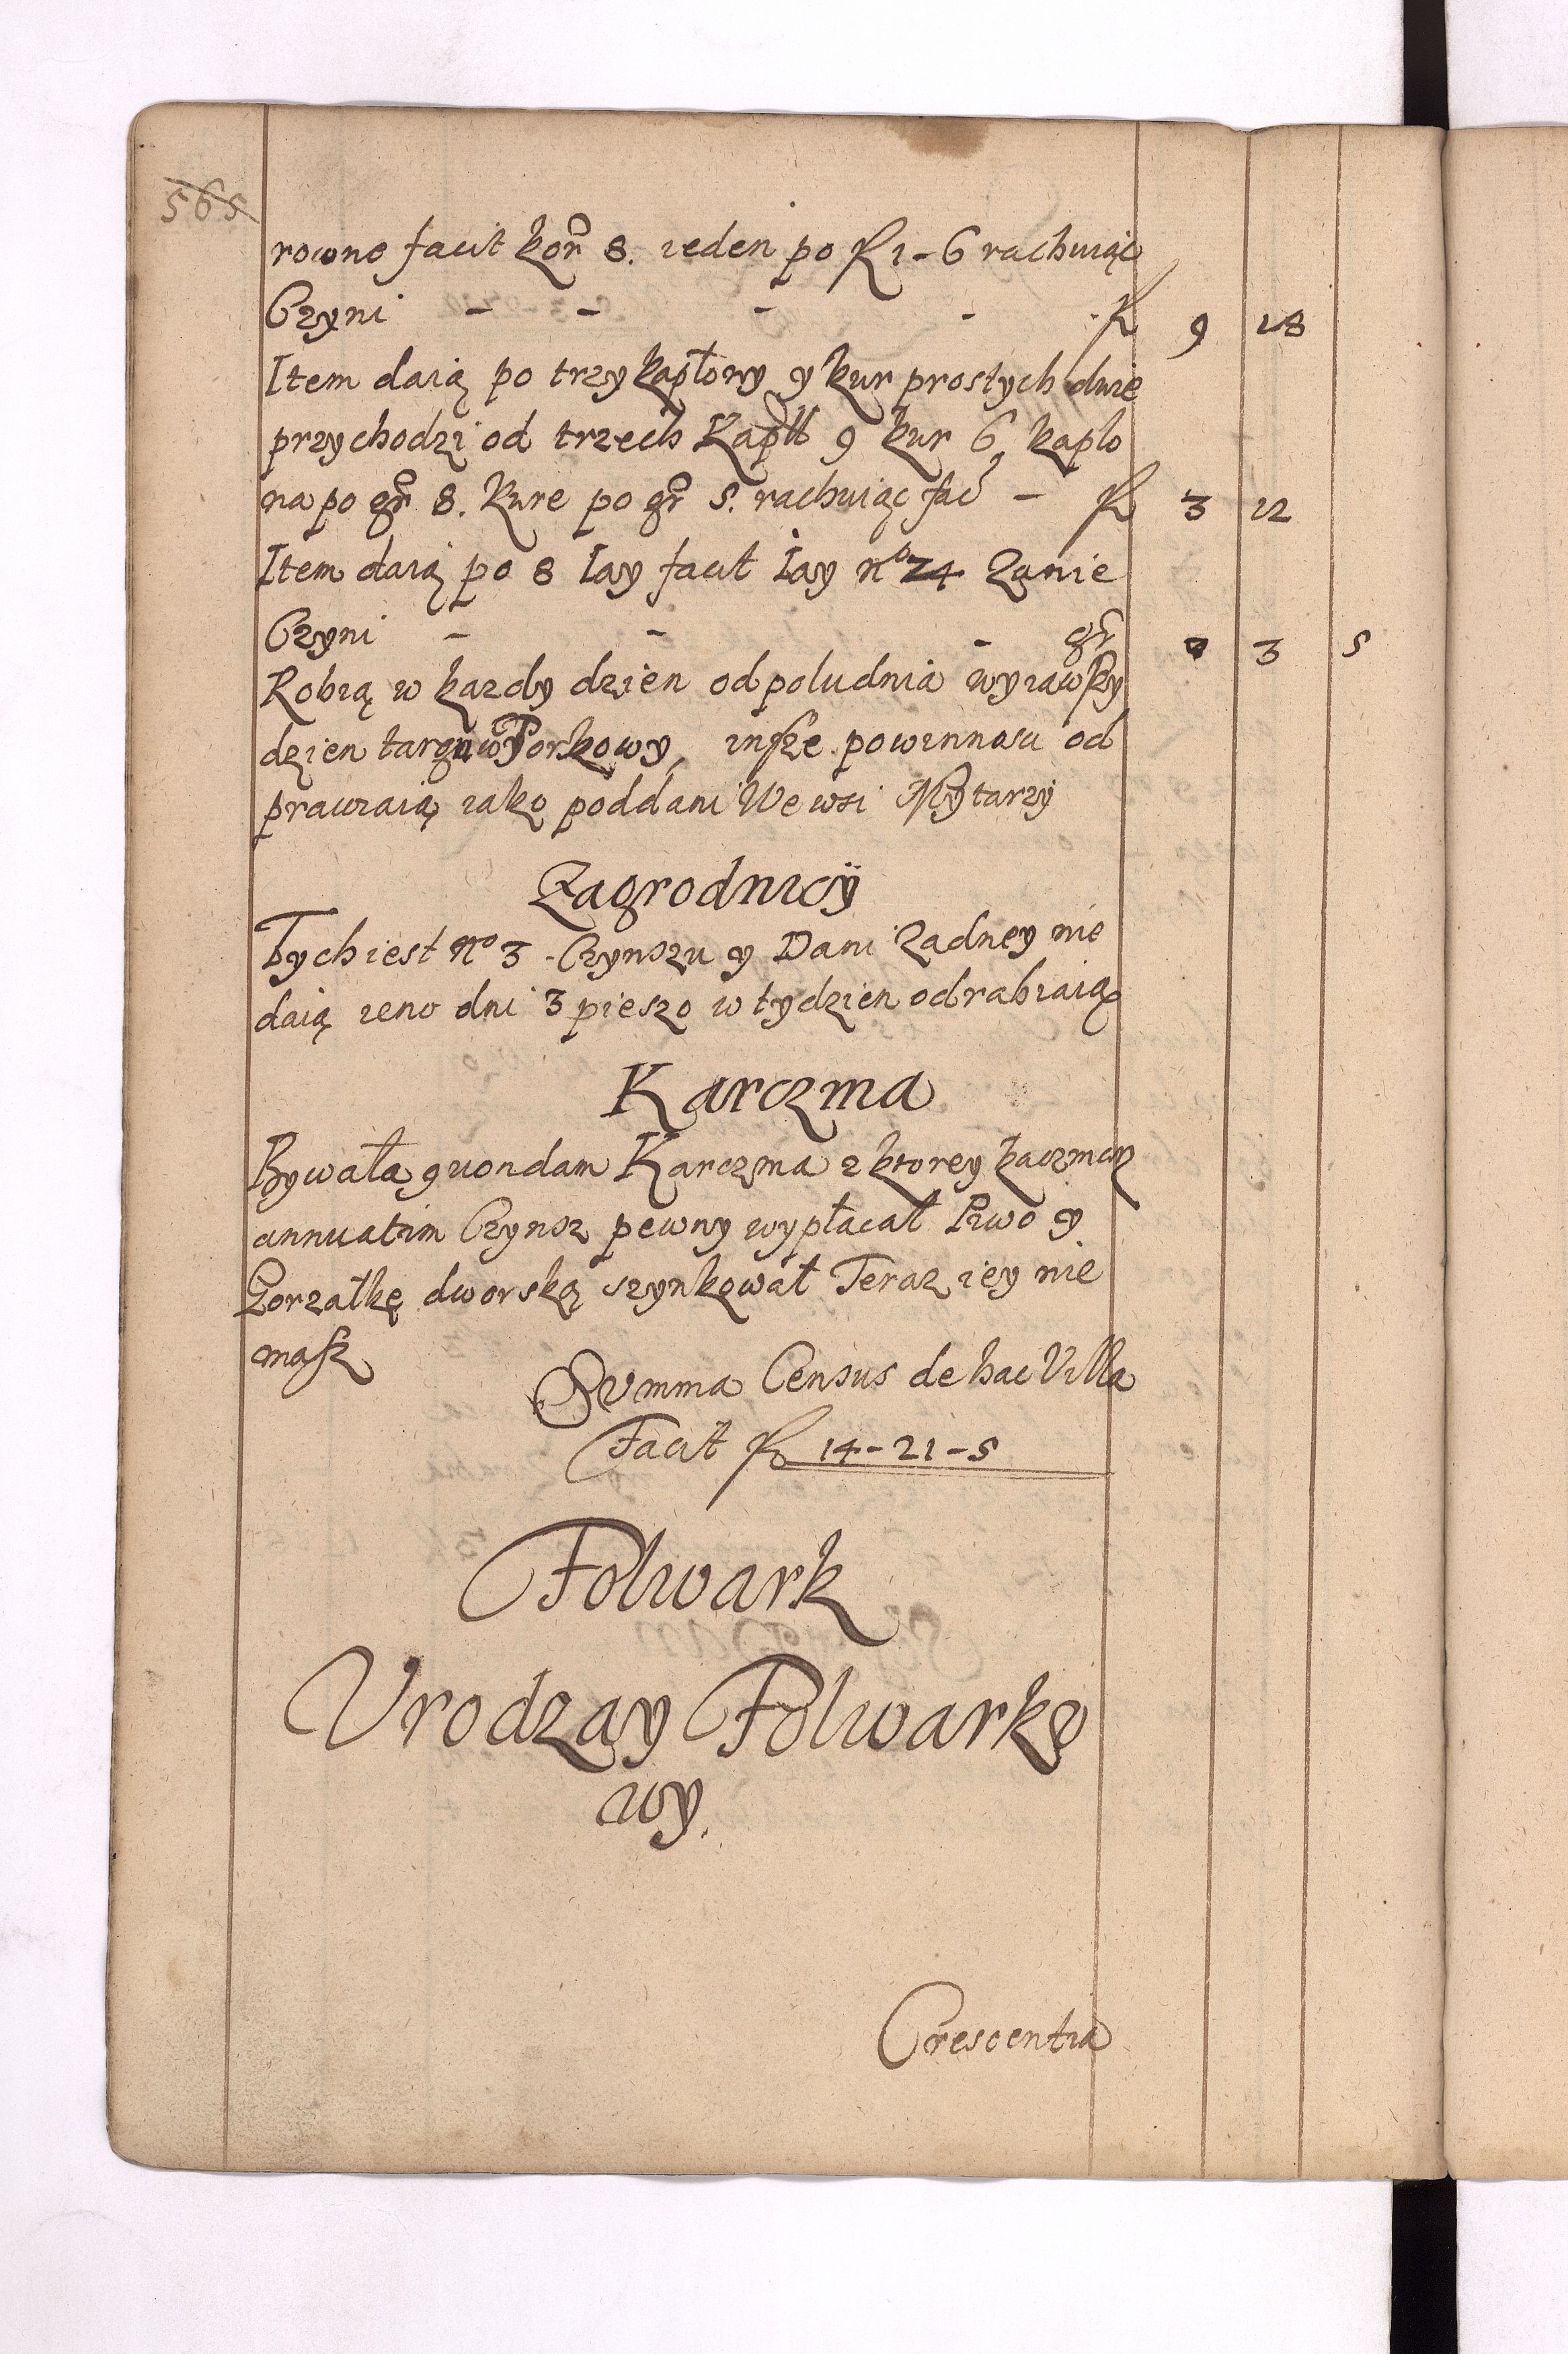 565
rowno facit kor 8. ieden po fl 1-6 rachuiąc
Czyni - - - - fl 9 18
Item daią po trzy kapłony y kur prostych dwie
przychodzi od trzech Kapłł 9 kur 6, kaplo
na po gr 8. Kure po gr 5. rachuiąc fac - fl 3 12
Item daią po 8 Iay facit Iay no 24 Zanie
Czyni - - - gr 0 3 5
Robią w kazdy dzien od poludnia wyiąwszy
dzien targuw Porkowy, insze powinnosci od
prawiaią iako poddani We wsi Mytarzy
Zagrodnicÿ
Tych iest No 3 - Czynszu y Dani Zadney nie
daią ieno dni 3 pieszo w tydzien odrabiaią
Karczma
Bywała quondam Karczma z ktorey kaczmarz
annuatim Czynsz pewny wypłacał Piwo y
Gorzałkę dworską szynkował Teraz iey nie
masz
Summa Census de hac Villa
Facit fl 14-21-5
Folwark
Urodzay Folwarko
wy.
Crescentia